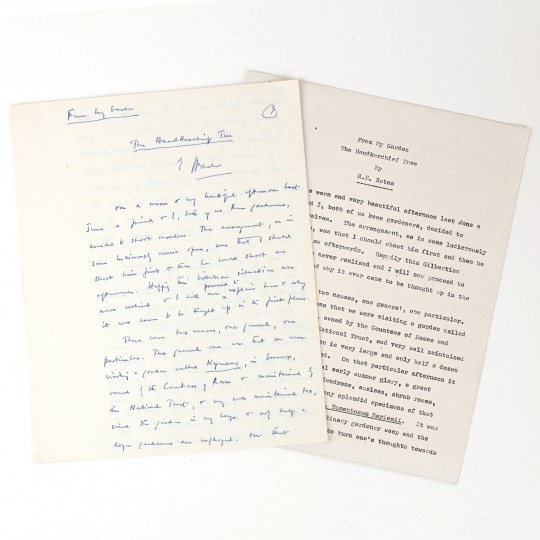 From my Garden
The Handkerchief Tree
On a warm & very beautiful afternoon last
June a friend & I, both of us keen gardeners,
decided to shoot ourselves. The arrangement, as in
some ludicrously comic opera, was that I should
shoot him first & then he would shoot me
afterwards. Happily this Gilbertian situation was
never realised & I will now proceed to explain how & why
it ever came to be thought up in the first place.
There were two causes, one general, one
particular. The general one was that we were
visiting a garden called Nymans, in Sussex,
owned by the Countess of Rosse & maintained by
the National Trust, & very well maintained too,
since the garden is very large & only half a
dozen gardeners are employed. On that
From My Garden
The Handkerchief Tree
By
H.E. Bates
a warm and very beautiful afternoon last June a
I, both of us keen gardeners, decided to
selves. The arrangement, as in some ludicrously
, was that I should shoot him first and then he
me afterwards. Happily this Gilbertian
never realised and I will now proceed to
and why it ever came to be thought up in the
two causes, one general, one particular.
was that we were visiting a garden called
owned by the Countess of Rosse and
National Trust, and very well maintained
n is very large and only half a dozen
ed. On that particular afternoon it
al early summer glory, a great
dendrons, azaleas, shrub roses,
any splendid specimens of that
Tomentosum Mariesii. It was
dinary gardener weep and the
to turn one's thoughts towards